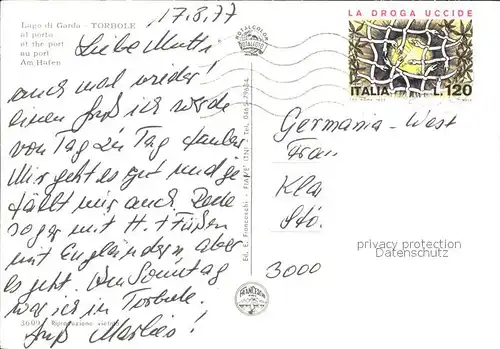 17.8.77
Lago di Garda - TORBOLE
al porto
at the port
au port
Am Hafen
Liebe Mutti
auch mal wieder!
einen Gruß ich werde
von Tag zu Tag fauler
Mir geht es gut und ge
fällt mir auch. Rede
sogar mit H.+Füßen
mit Engländern, aber
es geht. Am Sonntag
war ich in Torbole.
Gruß Marlies!
3609 Riproduzione vietata
ROTALCOLOR
ROTALFOTO
Ed. E. Franceschi - FIAVE' (TN) - Tel. 0465/79684
FRANCESCHI
LA DROGA UCCIDE
ITALIA L.120
Germania-West
Frau
Kla
Stö
3000
privacy protection
Datenschutz